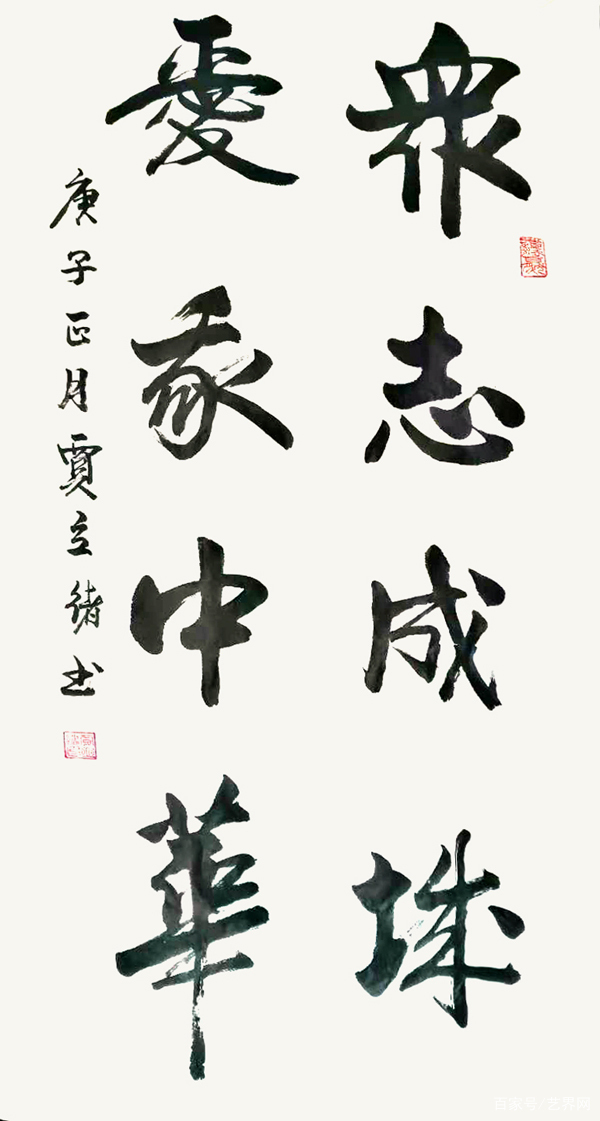 眾志成城
愛我中華
庚子正月賈立緒書
百家号/艺界网